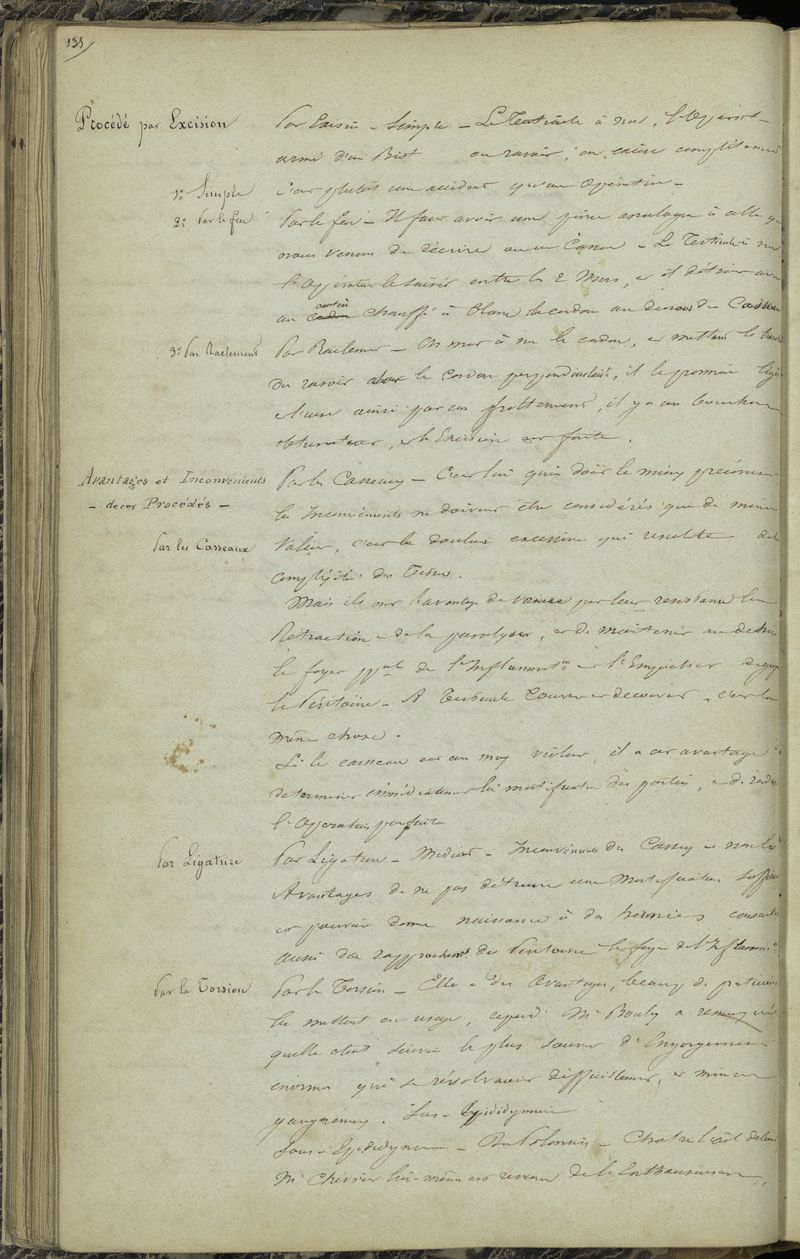 135
Procédé par Excision
Par Exisin - Simple - Le Testicule à nu, l'opérat
armé d'un Bist ou rasoir, en excise complètement
c'est plutôt une accident qu'une Opération -
1º Simple
2º Par le feu
Par le feu - Il faut avoir une pince analogue à celle q
nous venons de décrire ou un Casseau - Le Testicule à nu
l'opérateur le saisit entre les 2 Mors, et il détruit avec
un cautère chauffé à blanc le cordon au dessous du Casseau
3º Par Raclement
Par Raclement - On met à nu le cordon, et mettant le tranch
du rasoir sur le cordon perpendiculaire, il le promène légè
ainsi par ces frottements, il y a un bouchon
obturateur, et l'Excision est faite.
Avantages et Inconvénients
- de ces Procédés -
Par les Casseaux
Par les Casseaux - C'est lui qu'on doit le mieux préconiser
les Inconvénients ne doivent être considérés que de minime
Valeur, c'est la douleur excessive qui résulte de la
complexité des Tissus.
Mais ils ont l'avantage de vaincre par leur résistance la
Rétraction de la paralyser, et de maintenir au dehors
le foyer ppal de l'Inflammatn et l'Empêcher de gag
le Péritoine - A Testicule Couvert et découvert, c'est la
même chose.
Si le casseau est un moy violent, il a cet avantage
déterminer immédiatement la mortification des parties, et de rendre
l'opération parfaite
Par Ligature
Par Ligature - Médiat - Inconvénients des Casseaux et non les
Avantages de ne pas détruire une Mortification suffisan
et pouvoir donner naissance à des hernies
aussi de rapprochent de Péritoine le foyer de l'Inflamm
Par la Torsion
Par la Torsion - Elle a des Avantages, beaucp de praticiens
la mettent en usage, cepend. Mr Bouley a remarqué
qu'elle était suivie le plus souvent d'Engorgements
énormes qui se résolvaient difficilement, et même
gangréneux. Sus-Epididymaire
Sous-Epididymaire -
Mr Chénier lui-même est revenu de l'enthousiasme,